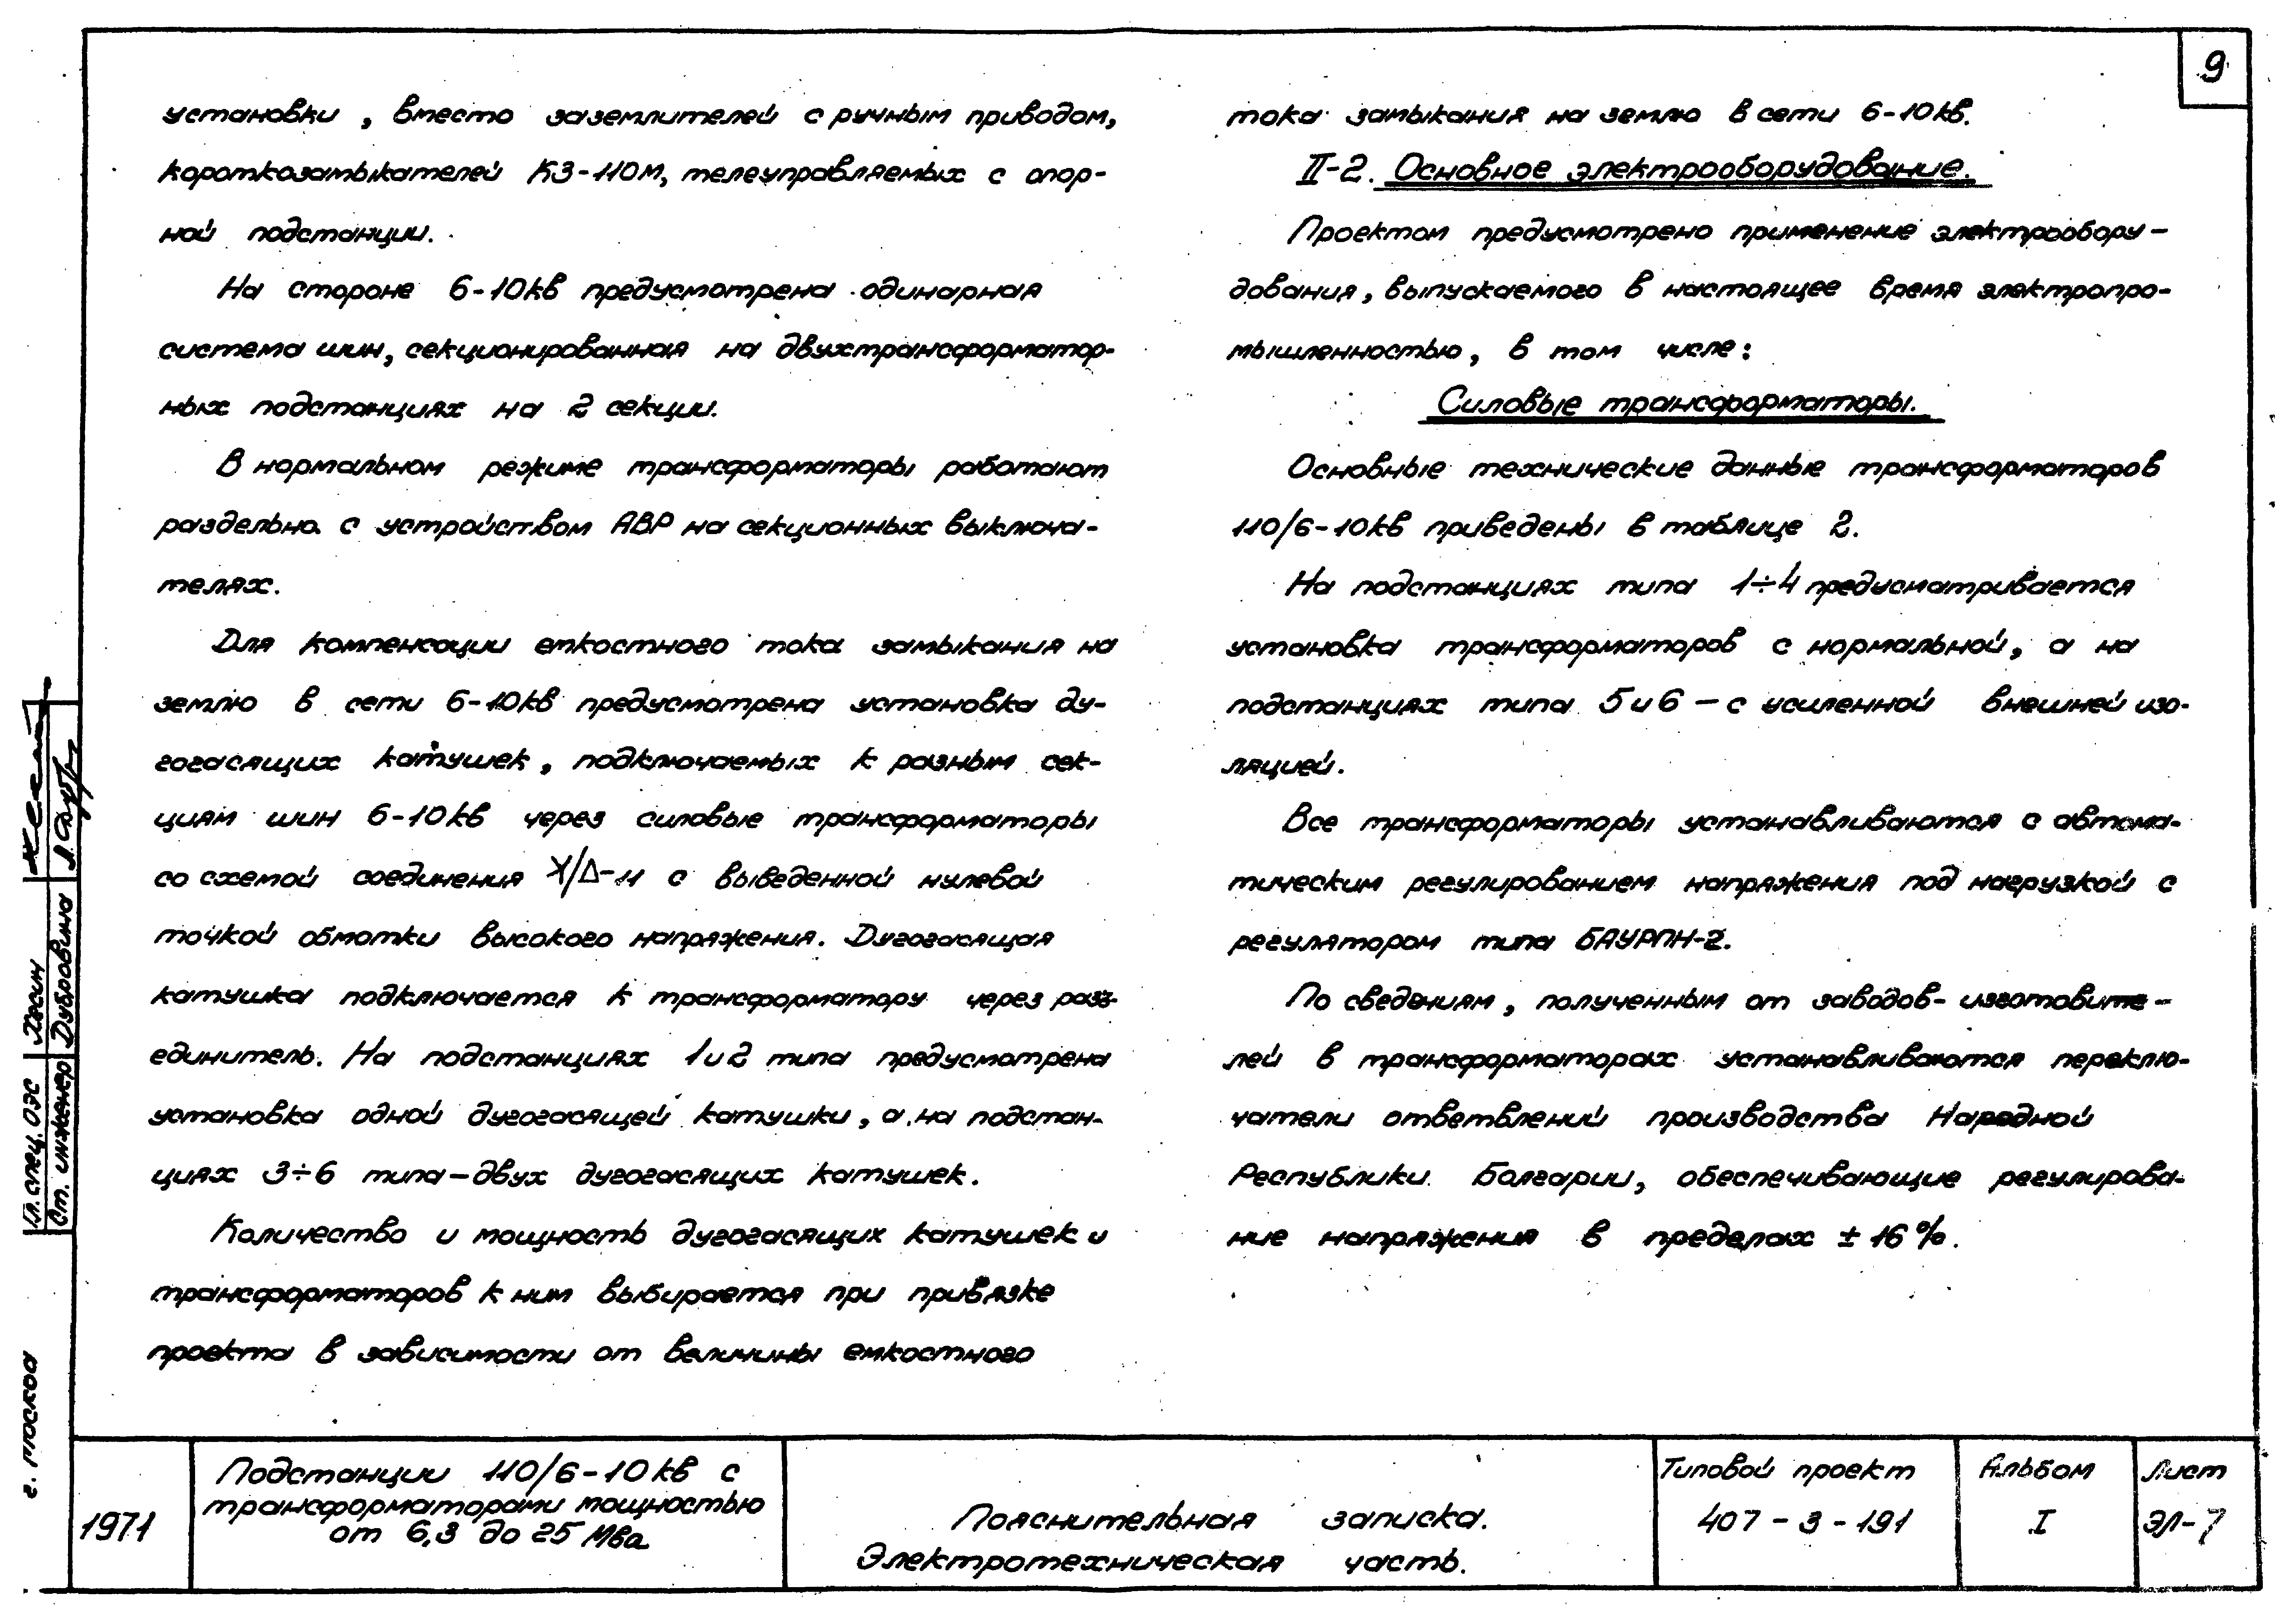 9
установки, вместо заземлителей с ручным приводом,
короткозамыкателей КЗ-110М, телеуправляемых с опор-
ной подстанции.
На стороне 6-10кв предусмотрена одинарная
система шин, секционированная на двухтрансформатор-
ных подстанциях на 2 секции.
В нормальном режиме трансформаторы работают
раздельно с устройством АВР на секционных выключа-
телях.
Для компенсации емкостного тока замыкания на
землю в сети 6-10кв предусмотрена установка ду-
гогасящих катушек, подключаемых к разным сек-
циям шин 6-10кв через силовые трансформаторы
со схемой соединения Y/Δ-11 с выведенной нулевой
точкой обмотки высокого напряжения. Дугогасящая
катушка подключается к трансформатору через разъ-
единитель. На подстанциях 1 и 2 типа предусмотрена
установка одной дугогасящей катушки, а на подстан-
циях 3÷6 типа – двух дугогасящих катушек.
Количество и мощность дугогасящих катушек и
трансформаторов к ним выбирается при привязке
проекта в зависимости от величины емкостного
тока замыкания на землю в сети 6-10кв.
II-2. Основное электрооборудование.
Проектом предусмотрено применение электрообору-
дования, выпускаемого в настоящее время электропро-
мышленностью, в том числе:
Силовые трансформаторы.
Основные технические данные трансформаторов
110/6-10кв приведены в таблице 2.
На подстанциях типа 1÷4 предусматривается
установка трансформаторов с нормальной, а на
подстанциях типа 5 и 6 – с усиленной внешней изо-
ляцией.
Все трансформаторы устанавливаются с автома-
тическим регулированием напряжения под нагрузкой с
регулятором типа БАУРПН-2.
По сведениям, полученным от заводов-изготовите-
лей в трансформаторах устанавливаются переклю-
чатели ответвлений производства Народной
Республики Болгарии, обеспечивающие регулирова-
ние напряжения в пределах ± 16%.
Гл. спец. ОЭС Хесин
Ст. инженер Дубровина
г. Москва
1971
Подстанции 110/6-10кв с
трансформаторами мощностью
от 6,3 до 25 Мва
Пояснительная записка.
Электротехническая часть.
Типовой проект
407-3-191
Альбом
I
Лист
ЭЛ-7